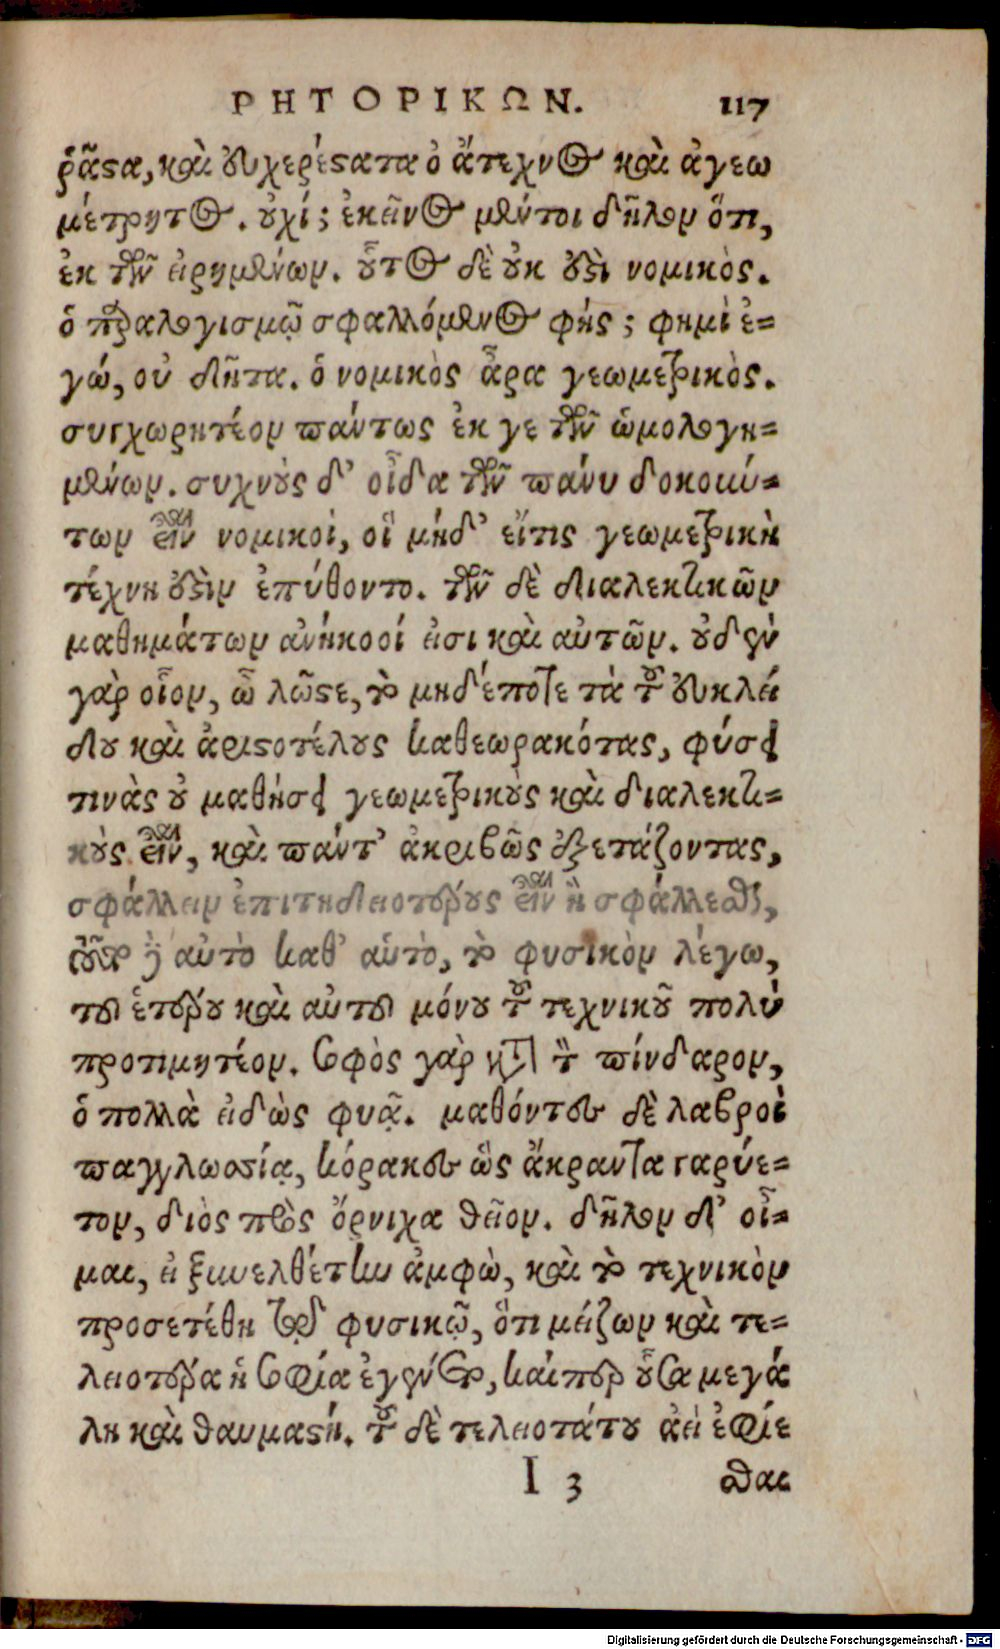 ΡΗΤΟΡΙΚΩΝ. 117
ῥᾷστα, καὶ εὐχερέστατα ὁ ἄτεχνος καὶ ἀγεω
μέτρητος. οὐχί; ἐκεῖνος μέντοι δῆλον ὅτι,
ἐκ τῶν εἰρημένων. οὗτος δὲ οὐκ ἔστι νομικὸς.
ὁ παραλογισμῷ σφαλλόμενος φῄς; φημὶ ἐ-
γώ, οὐ δῆτα. ὁ νομικὸς ἆρα γεωμετρικὸς.
συγχωρητέον πάντως ἐκ γε τῶν ὡμολογη-
μένων. συχνοὺς δ' οἶδα τῶν πάνυ δοκούν-
των εἶναι νομικοὶ, οἳ μήδ' εἴτις γεωμετρικὴ
τέχνη ἐστὶν ἐπύθοντο. τῶν δὲ διαλεκτικῶν
μαθημάτων ἀνήκοοί εἰσι καὶ αὐτῶν. οὐδὲν
γὰρ οἷον, ὦ λῷστε, τὸ μηδέποτε τὰ τοῦ εὐκλεί
δου καὶ ἀριστοτέλους καθεωρακότας, φύσει
τινὰς οὐ μαθήσει γεωμετρικοὺς καὶ διαλεκτι-
κοὺς εἶναι, καὶ πάντ' ἀκριβῶς ἐξετάζοντας,
σφάλλειν ἐπιτηδειοτέρους εἶναι ἢ σφάλλεσθαι,
ὅπερ ἐγὼ αὐτὸ καθ' αὑτὸ, τὸ φυσικὸν λέγω,
τοῦ ἑτέρου καὶ αὐτοῦ μόνου τοῦ τεχνικοῦ πολὺ
προτιμητέον. σοφὸς γὰρ κατὰ τὸν πίνδαρον,
ὁ πολλὰ εἰδὼς φυᾷ. μαθόντες δὲ λαβροὶ
παγγλωσίᾳ, κόρακες ὣς ἄκραντα γαρύε-
τον, διὸς πρὸς ὄρνιχα θεῖον. δῆλον δ' οἶ-
μαι, εἰ ξυνελθέτην ἀμφὼ, καὶ τὸ τεχνικὸν
προσετέθη τῷδε φυσικῷ, ὅτι μείζων καὶ τε-
λειοτέρα ἡ σοφία ἐγένετο, καίπερ οὖσα μεγά
λη καὶ θαυμαστή. τοῦ δὲ τελειοτάτου ἀεὶ ἐφίε
I 3 σθαι
Digitalisierung gefördert durch die Deutsche Forschungsgemeinschaft - DFG